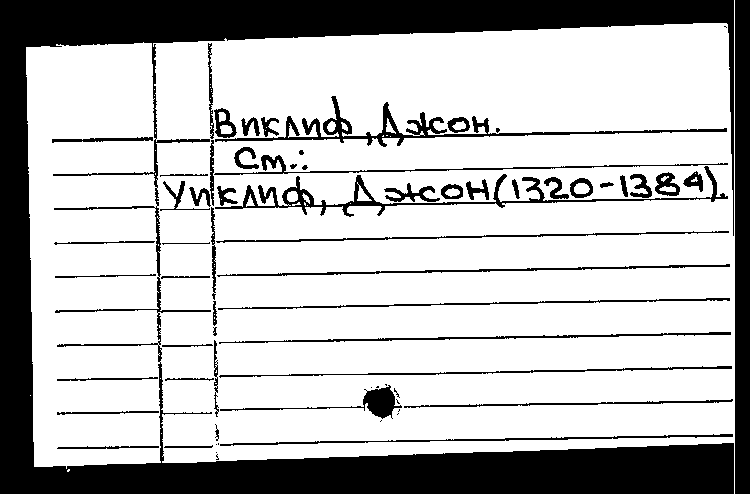 Виклиф, Джон.
См.:
Уиклиф, Джон (1320-1384).